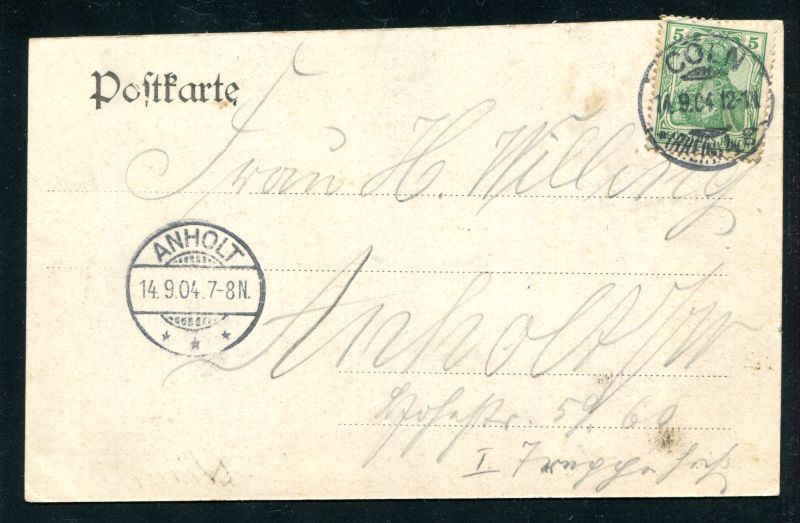 Postkarte
5 5
CÖLN
14.9.04.12-1N
Frau H. Willing
ANHOLT
14.9.04.7-8N.
Anholt i/W
59/60
I Treppe hoch